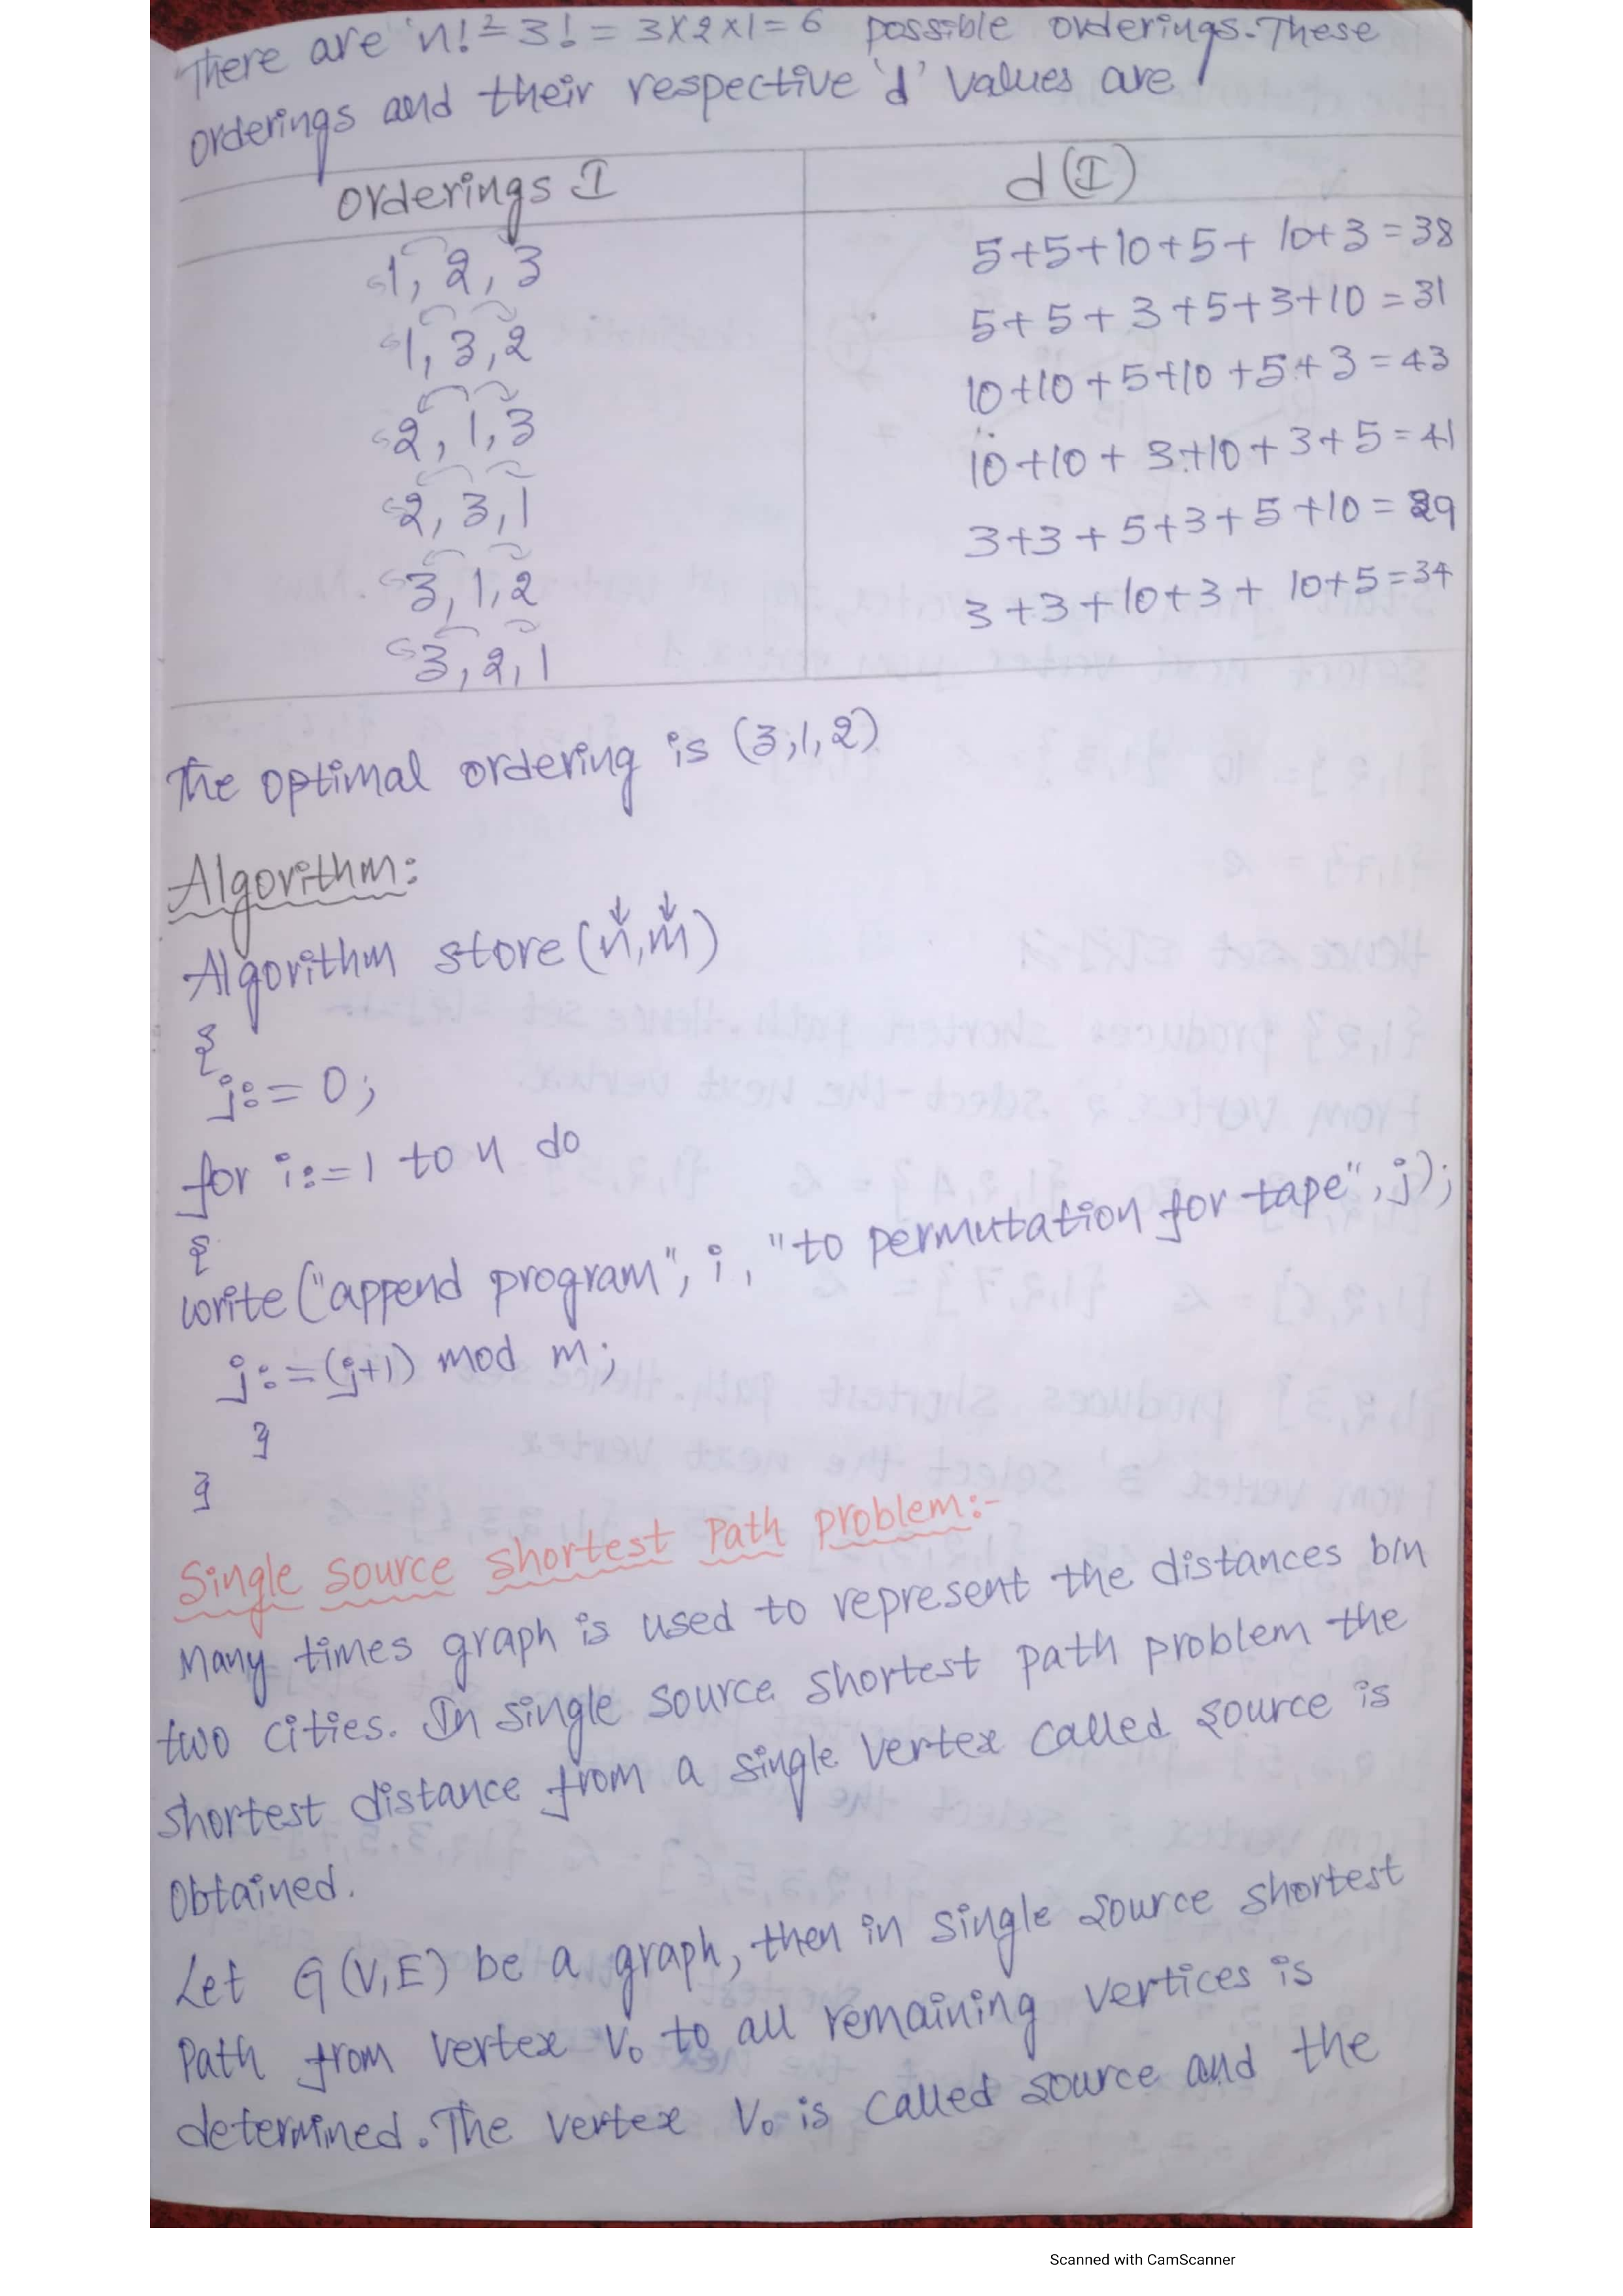 There are 'n! = 3! = 3×2×1 = 6 possible orderings. These
orderings and their respective 'd' values are
orderings I d(I)
1, 2, 3 5+5+10+5+10+3=38
1, 3, 2 5+5+3+5+3+10=31
2, 1, 3 10+10+5+10+5+3=43
2, 3, 1 10+10+3+10+3+5=41
3, 1, 2 3+3+5+3+5+10=29
3, 2, 1 3+3+10+3+10+5=34
The optimal ordering is (3,1,2)
Algorithm:
Algorithm store(n,m)
{
j:=0;
for i:=1 to n do
{
write("append program", i, "to permutation for tape", j);
j:=(j+1) mod m;
}
}
Single source shortest path problem:-
Many times graph is used to represent the distances b/n
two cities. In single source shortest path problem the
shortest distance from a single vertex called source is
obtained.
Let G(V,E) be a graph, then in single source shortest
path from vertex V₀ to all remaining vertices is
determined. The vertex V₀ is called source and the
Scanned with CamScanner